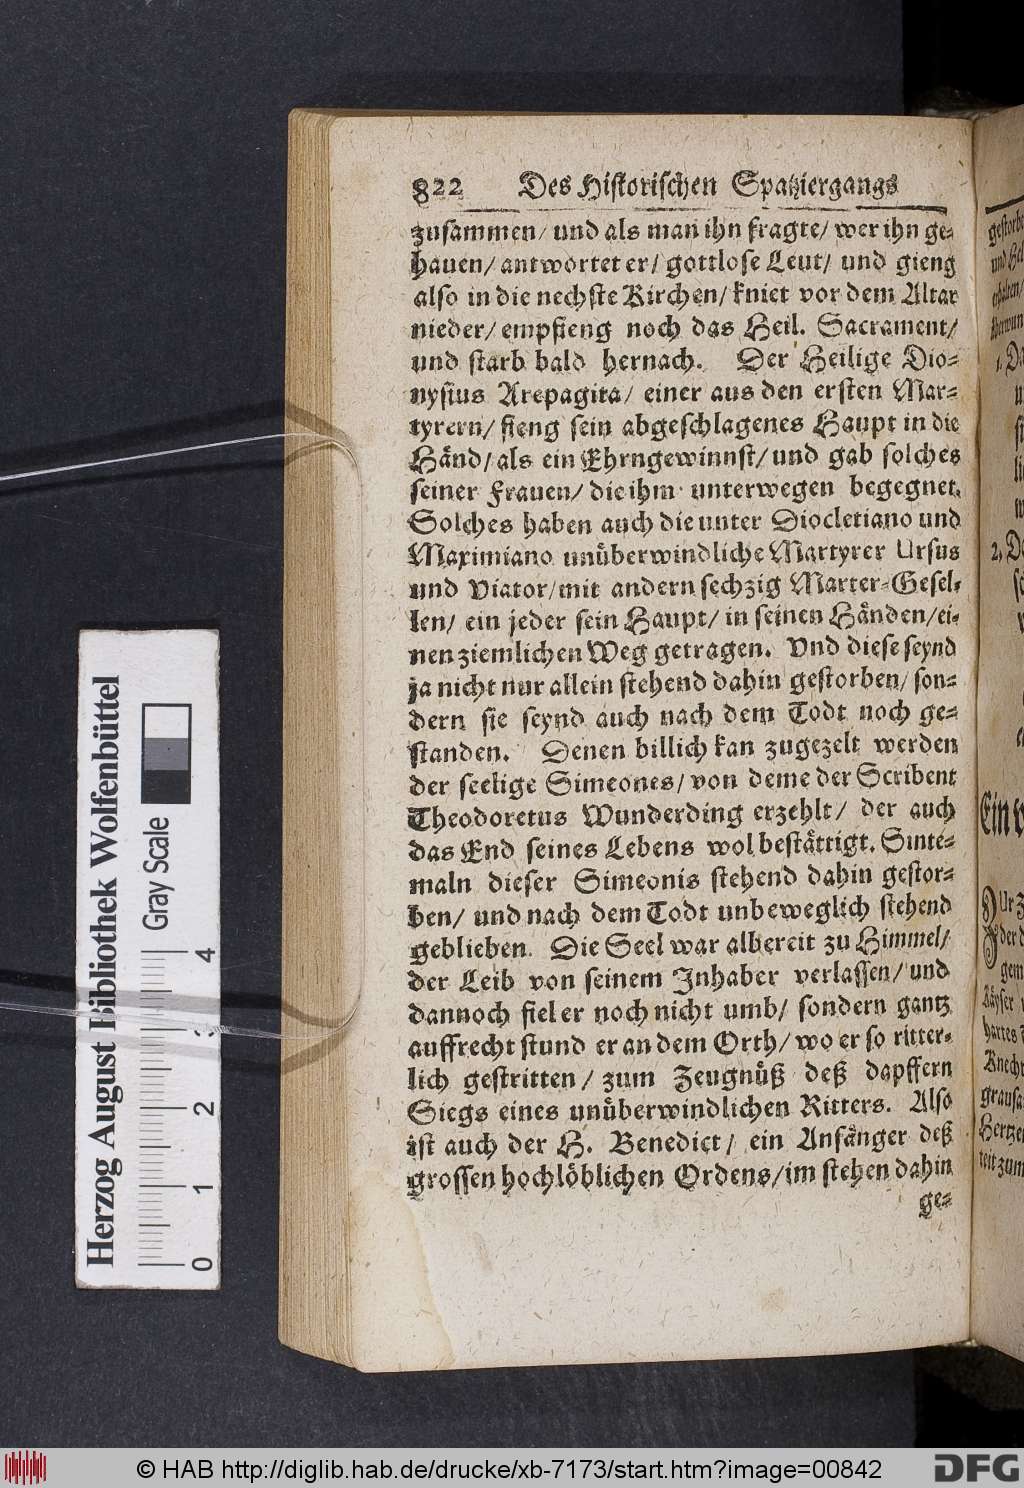 822 Des Historischen Spatziergangs
zusammen/ und als man ihn fragte/ wer ihn ge-
hauen/ antwortet er/ gottlose Leut/ und gieng
also in die nechste Kirchen/ kniet vor dem Altar
nieder/ empfieng noch das Heil. Sacrament/
und starb bald hernach. Der Heilige Dio-
nysius Arepagita/ einer aus den ersten Mar-
tyrern/ fieng sein abgeschlagenes Haupt in die
Händ/ als ein Ehrngewinnst/ und gab solches
seiner Frauen/ die ihm unterwegen begegnet.
Solches haben auch die unter Diocletiano und
Maximiano unüberwindliche Martyrer Ursus
und Viator/ mit andern sechzig Marter-Gesel-
len/ ein jeder sein Haupt/ in seinen Händen/ ei-
nen ziemlichen Weg getragen. Und diese seynd
ja nicht nur allein stehend dahin gestorben/ son-
dern sie seynd auch nach dem Todt noch ge-
standen. Denen billich kan zugezelt werden
der seelige Simeones/ von deme der Scribent
Theodoretus Wunderding erzehlt/ der auch
das End seines Lebens wol bestättigt. Sinte-
maln dieser Simeonis stehend dahin gestor-
ben/ und nach dem Todt unbeweglich stehend
geblieben. Die Seel war albereit zu Himmel/
der Leib von seinem Inhaber verlassen/ und
dannoch fiel er noch nicht umb/ sondern gantz
auffrecht stund er an dem Orth/ wo er so ritter-
lich gestritten/ zum Zeugnüß deß dapffern
Siegs eines unüberwindlichen Ritters. Also
ist auch der H. Benedict/ ein Anfänger deß
grossen hochlöblichen Ordens/ im stehen dahin
ge-
Herzog August Bibliothek Wolfenbüttel
Gray Scale
0 1 2 3 4
© HAB http://diglib.hab.de/drucke/xb-7173/start.htm?image=00842
DFG